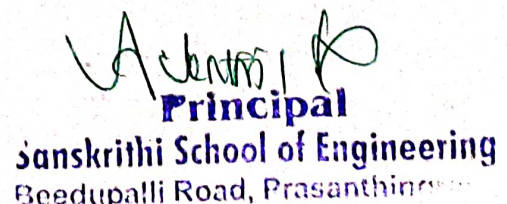 Principal
Sanskrithi School of Engineering
Beedupalli Road,